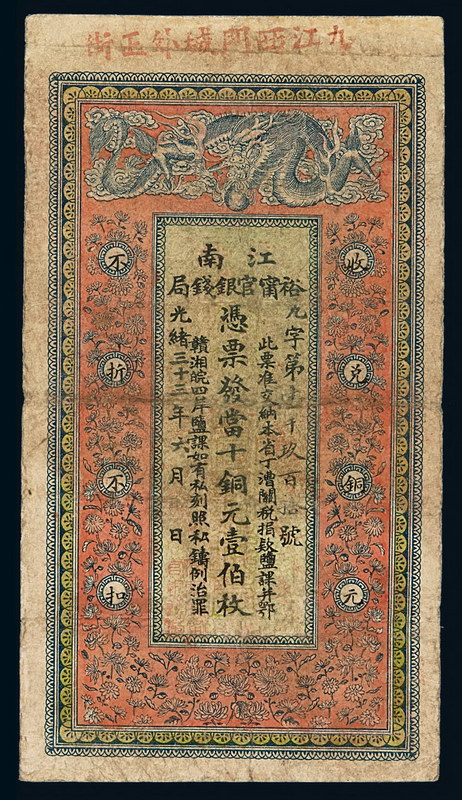 九江西門城外正街
江南
裕甯官銀錢局
九字第 千玖百拾號
此票准交納本省丁漕關稅捐款鹽課并鄂
憑票發當十銅元壹伯枚
贛湘皖四岸鹽課如有私刻照私鑄例治罪
光緒三十三年六月 日
收兌銅元
不折不扣